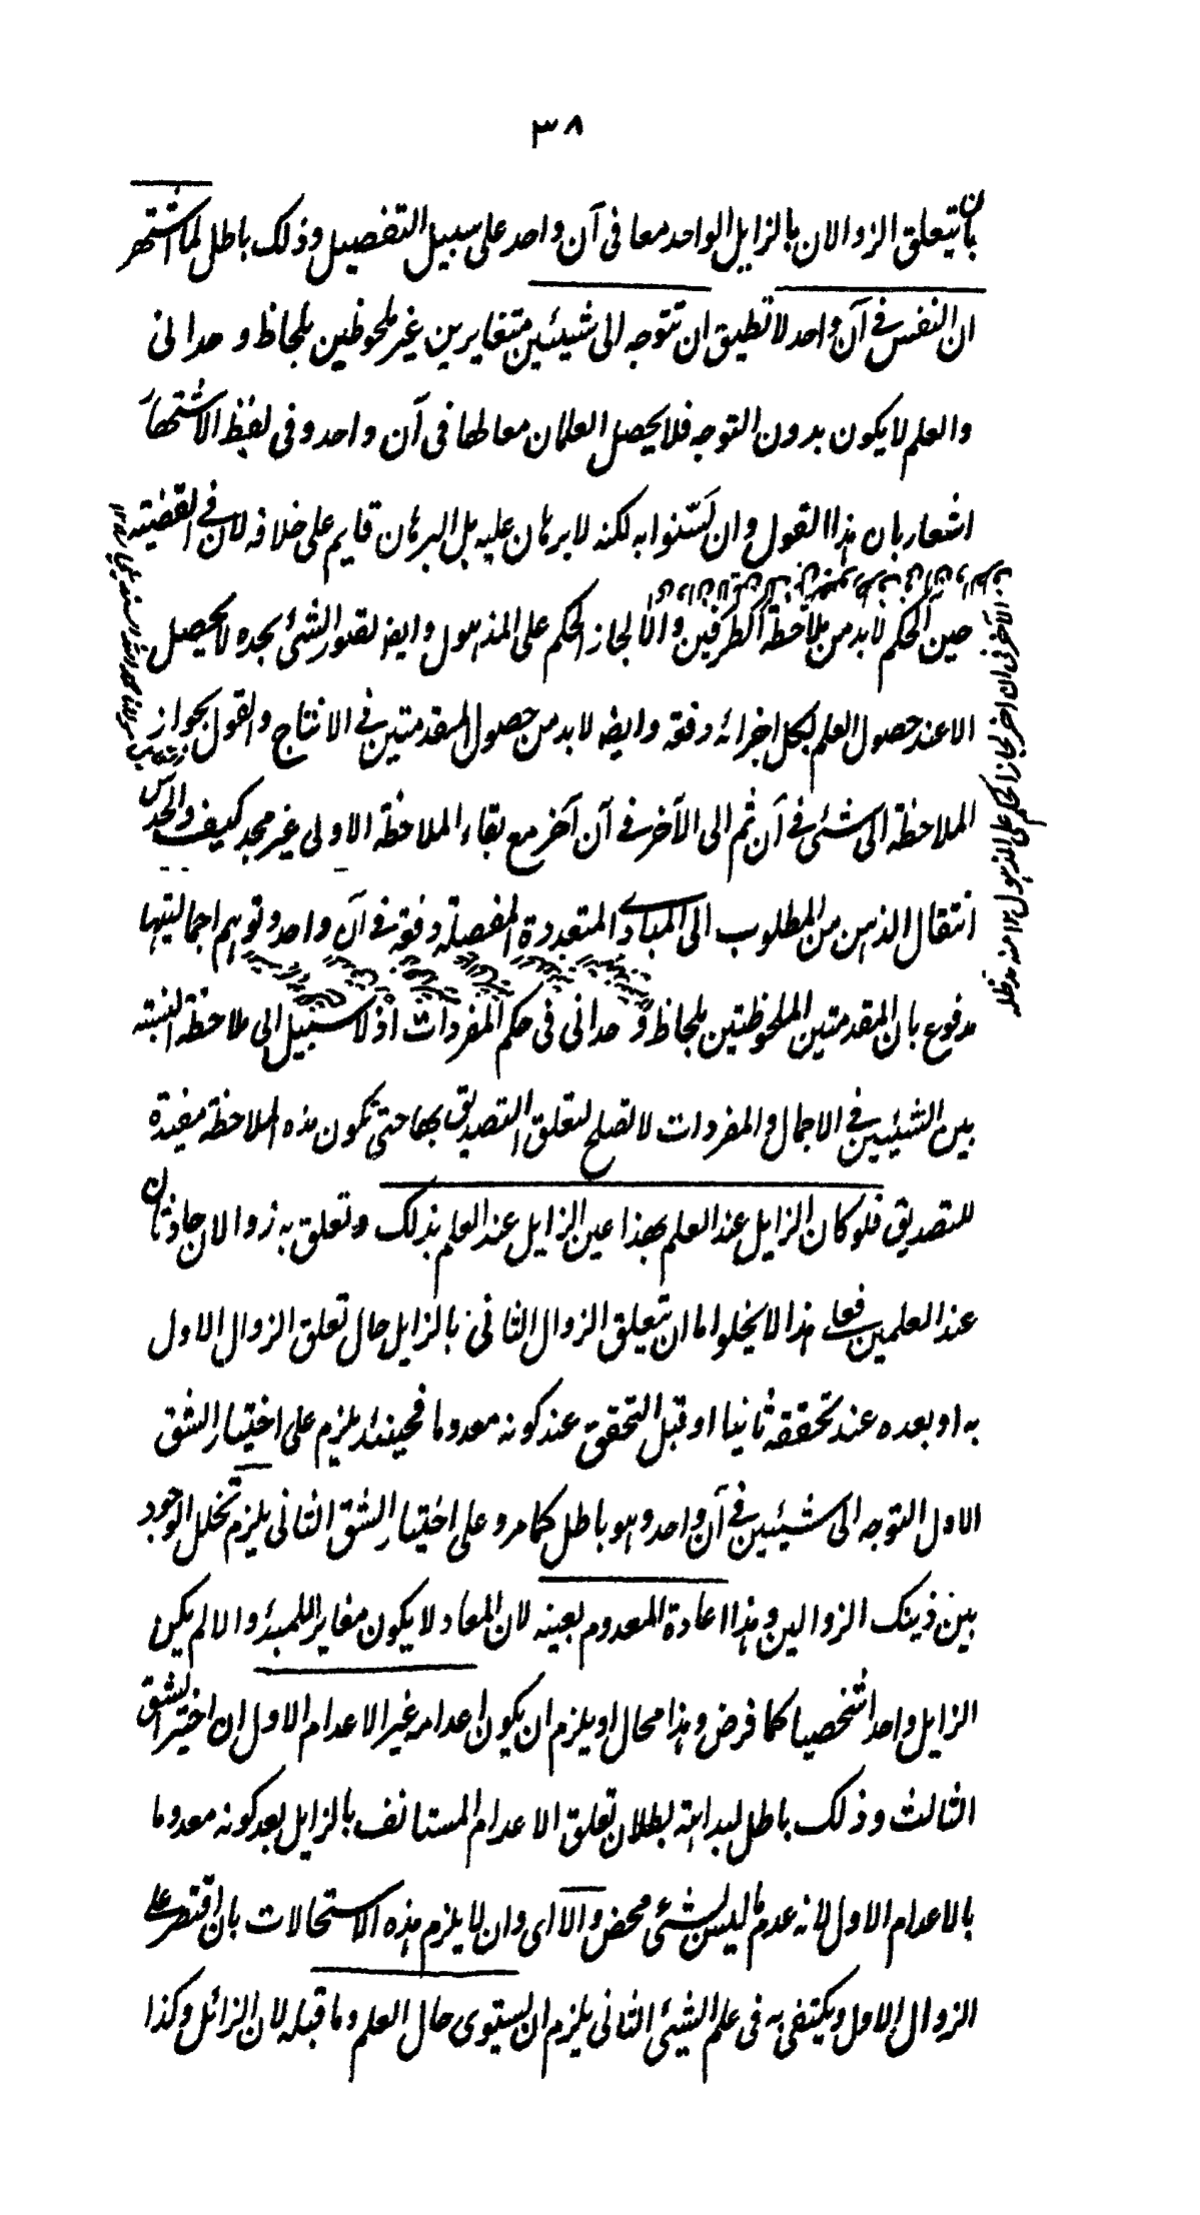 ٣٨
بان يتعلق الزوالان بالزايل الواحد معا فى آن واحد على سبيل التفصيل وذلك باطل لما اشتهر
ان النفس فى آن واحد لا تطيق ان تتوجه الى شيئين متغايرين غير ملحوظين بلحاظ وحدانى
والعلم لا يكون بدون التوجه فلا يحصل العلمان معا لها فى آن واحد وفى لفظ الاشتهار
اشعار بان هذا القول وان تسننوا به لكنه لا برهان عليه بل البرهان قايم على خلافه لان فى القضية
حين الحكم لابد من ملاحظة الطرفين والا لجاز الحكم على المذهول وايضا تصور الشئ بحده لا يحصل
الا عند حصول العلم بكل اجزائه دفعة وايضا لابد من حصول المقدمتين فى الانتاج والقول بجواز
الملاحظة الى شئ فى آن ثم الى الآخر فى آن آخر مع بقاء الملاحظة الاولى غير مجد كيف والحدس
انتقال الذهن من المطلوب الى المبادى المتعددة المفصلة دفعة فى آن واحد وتوهم اجماليتها
مدفوع بان المقدمتين الملحوظتين بلحاظ وحدانى فى حكم المفردات اذ لا سبيل الى ملاحظة النسبة
بين الشيئين فى الاجمال والمفردات لا تصلح لتعلق التصديق بها حتى تكون هذه الملاحظة مفيدة
للتصديق فلو كان الزايل عند العلم بهذا عين الزايل عند العلم بذلك وتعلق به زوالان حادثان
عند العلمين فعلى هذا لا يخلوا ما ان يتعلق الزوال الثانى بالزايل حال تعلق الزوال الاول
به او بعده عند تحققه ثانيا او قبل التحقق عند كونه معدوما فحينئذ يلزم على اختيار الشق
الاول التوجه الى شيئين فى آن واحد وهو باطل كما مر وعلى اختيار الشق الثانى يلزم تخلل الوجود
بين ذينك الزوالين وهذا اعادة المعدوم بعينه لان المعاد لا يكون مغاير اللمبدؤ والا لم يكن
الزايل واحدا شخصيا كما فرض وهذا محال او يلزم ان يكون اعدامه غير الاعدام الاول ان اختير الشق
الثالث وذلك باطل لبداهة بطلان تعلق الاعدام المستانف بالزايل بعد كونه معدوما
بالاعدام الاول لانه عدم ما ليس بشئ محض والا اى وان لا يلزم هذه الاستحالات بان اقتصر على
الزوال الاول ويكتفى به فى علم الشئ الثانى يلزم ان يستوى حال العلم وما قبله لان الزائل وكذا